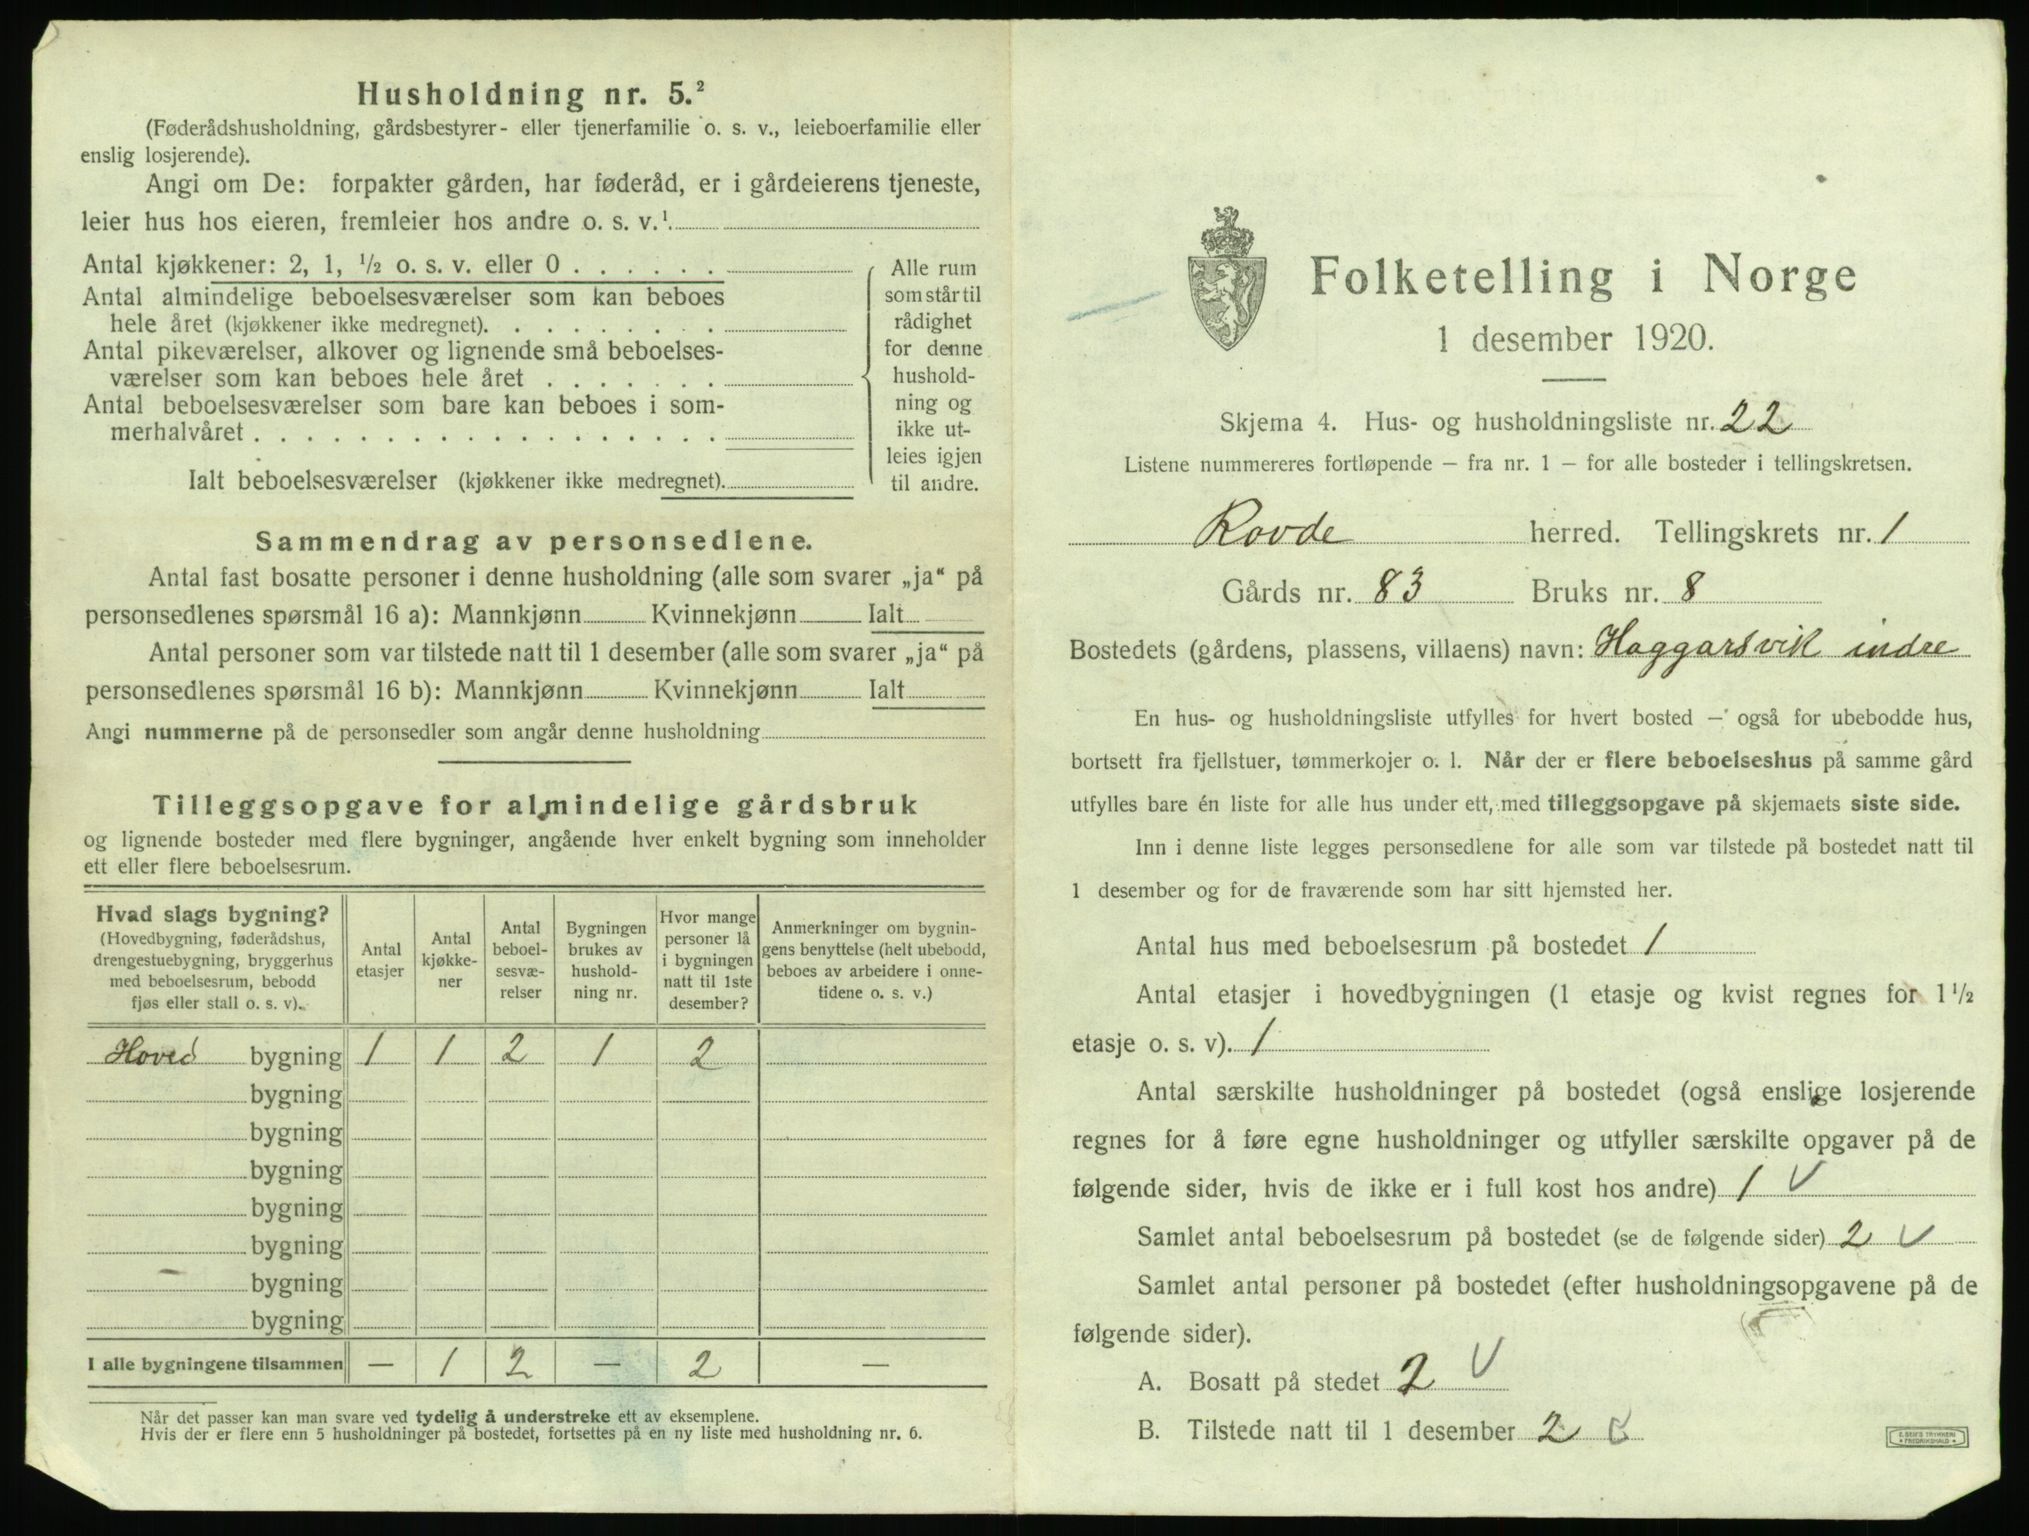 Husholdning nr. 5.²
(Føderådshusholdning, gårdsbestyrer- eller tjenerfamilie o. s. v., leieboerfamilie eller
enslig losjerende).
Angi om De: forpakter gården, har føderåd, er i gårdeierens tjeneste,
leier hus hos eieren, fremleier hos andre o. s. v.¹
Antal kjøkkener: 2, 1, ½ o. s. v. eller 0 . . . . . .
Antal almindelige beboelsesværelser som kan beboes
hele året (kjøkkener ikke medregnet). . . . . . . . .
Antal pikeværelser, alkover og lignende små beboelses-
værelser som kan beboes hele året . . . . . . .
Antal beboelsesværelser som bare kan beboes i som-
merhalvåret . . . . . . . . . . . . . . . . . . .
Ialt beboelsesværelser (kjøkkener ikke medregnet).
Alle rum
som står til
rådighet
for denne
hushold-
ning og
ikke ut-
leies igjen
til andre.
Sammendrag av personsedlene.
Antal fast bosatte personer i denne husholdning (alle som svarer „ja“ på
personsedlenes spørsmål 16 a): Mannkjønn Kvinnekjønn Ialt
Antal personer som var tilstede natt til 1 desember (alle som svarer „ja“ på
personsedlenes spørsmål 16 b): Mannkjønn Kvinnekjønn Ialt
Angi nummerne på de personsedler som angår denne husholdning
Tilleggsopgave for almindelige gårdsbruk
og lignende bosteder med flere bygninger, angående hver enkelt bygning som inneholder
ett eller flere beboelsesrum.
Hvad slags bygning?
(Hovedbygning, føderådshus,
drengestuebygning, bryggerhus
med beboelsesrum, bebodd
fjøs eller stall o. s. v).
Antal
etasjer
Antal
kjøkke-
ner
Antal
beboel-
sesvæ-
relser
Bygningen
brukes av
hushold-
ning nr.
Hvor mange
personer lå
i bygningen
natt til 1ste
desember?
Anmerkninger om bygnin-
gens benyttelse (helt ubebodd,
beboes av arbeidere i onne-
tidene o. s. v.)
Hoved bygning 1 1 2 1 2
bygning
bygning
bygning
bygning
bygning
bygning
bygning
I alle bygningene tilsammen — 1 2 — 2 —
Når det passer kan man svare ved tydelig å understreke ett av eksemplene.
Hvis der er flere enn 5 husholdninger på bostedet, fortsettes på en ny liste med husholdning nr. 6.
Folketelling i Norge
1 desember 1920.
Skjema 4. Hus- og husholdningsliste nr. 22
Listene nummereres fortløpende — fra nr. 1 — for alle bosteder i tellingskretsen.
Rovde herred. Tellingskrets nr. 1
Gårds nr. 83 Bruks nr. 8
Bostedets (gårdens, plassens, villaens) navn: Haggarsvik indre
En hus- og husholdningsliste utfylles for hvert bosted — også for ubebodde hus,
bortsett fra fjellstuer, tømmerkojer o. l. Når der er flere beboelseshus på samme gård
utfylles bare én liste for alle hus under ett, med tilleggsopgave på skjemaets siste side.
Inn i denne liste legges personsedlene for alle som var tilstede på bostedet natt til
1 desember og for de fraværende som har sitt hjemsted her.
Antal hus med beboelsesrum på bostedet 1
Antal etasjer i hovedbygningen (1 etasje og kvist regnes for 1½
etasje o. s. v). 1
Antal særskilte husholdninger på bostedet (også enslige losjerende
regnes for å føre egne husholdninger og utfyller særskilte opgaver på de
følgende sider, hvis de ikke er i full kost hos andre) 1 V
Samlet antal beboelsesrum på bostedet (se de følgende sider) 2 V
Samlet antal personer på bostedet (efter husholdningsopgavene på de
følgende sider).
A. Bosatt på stedet 2 V
B. Tilstede natt til 1 desember 2